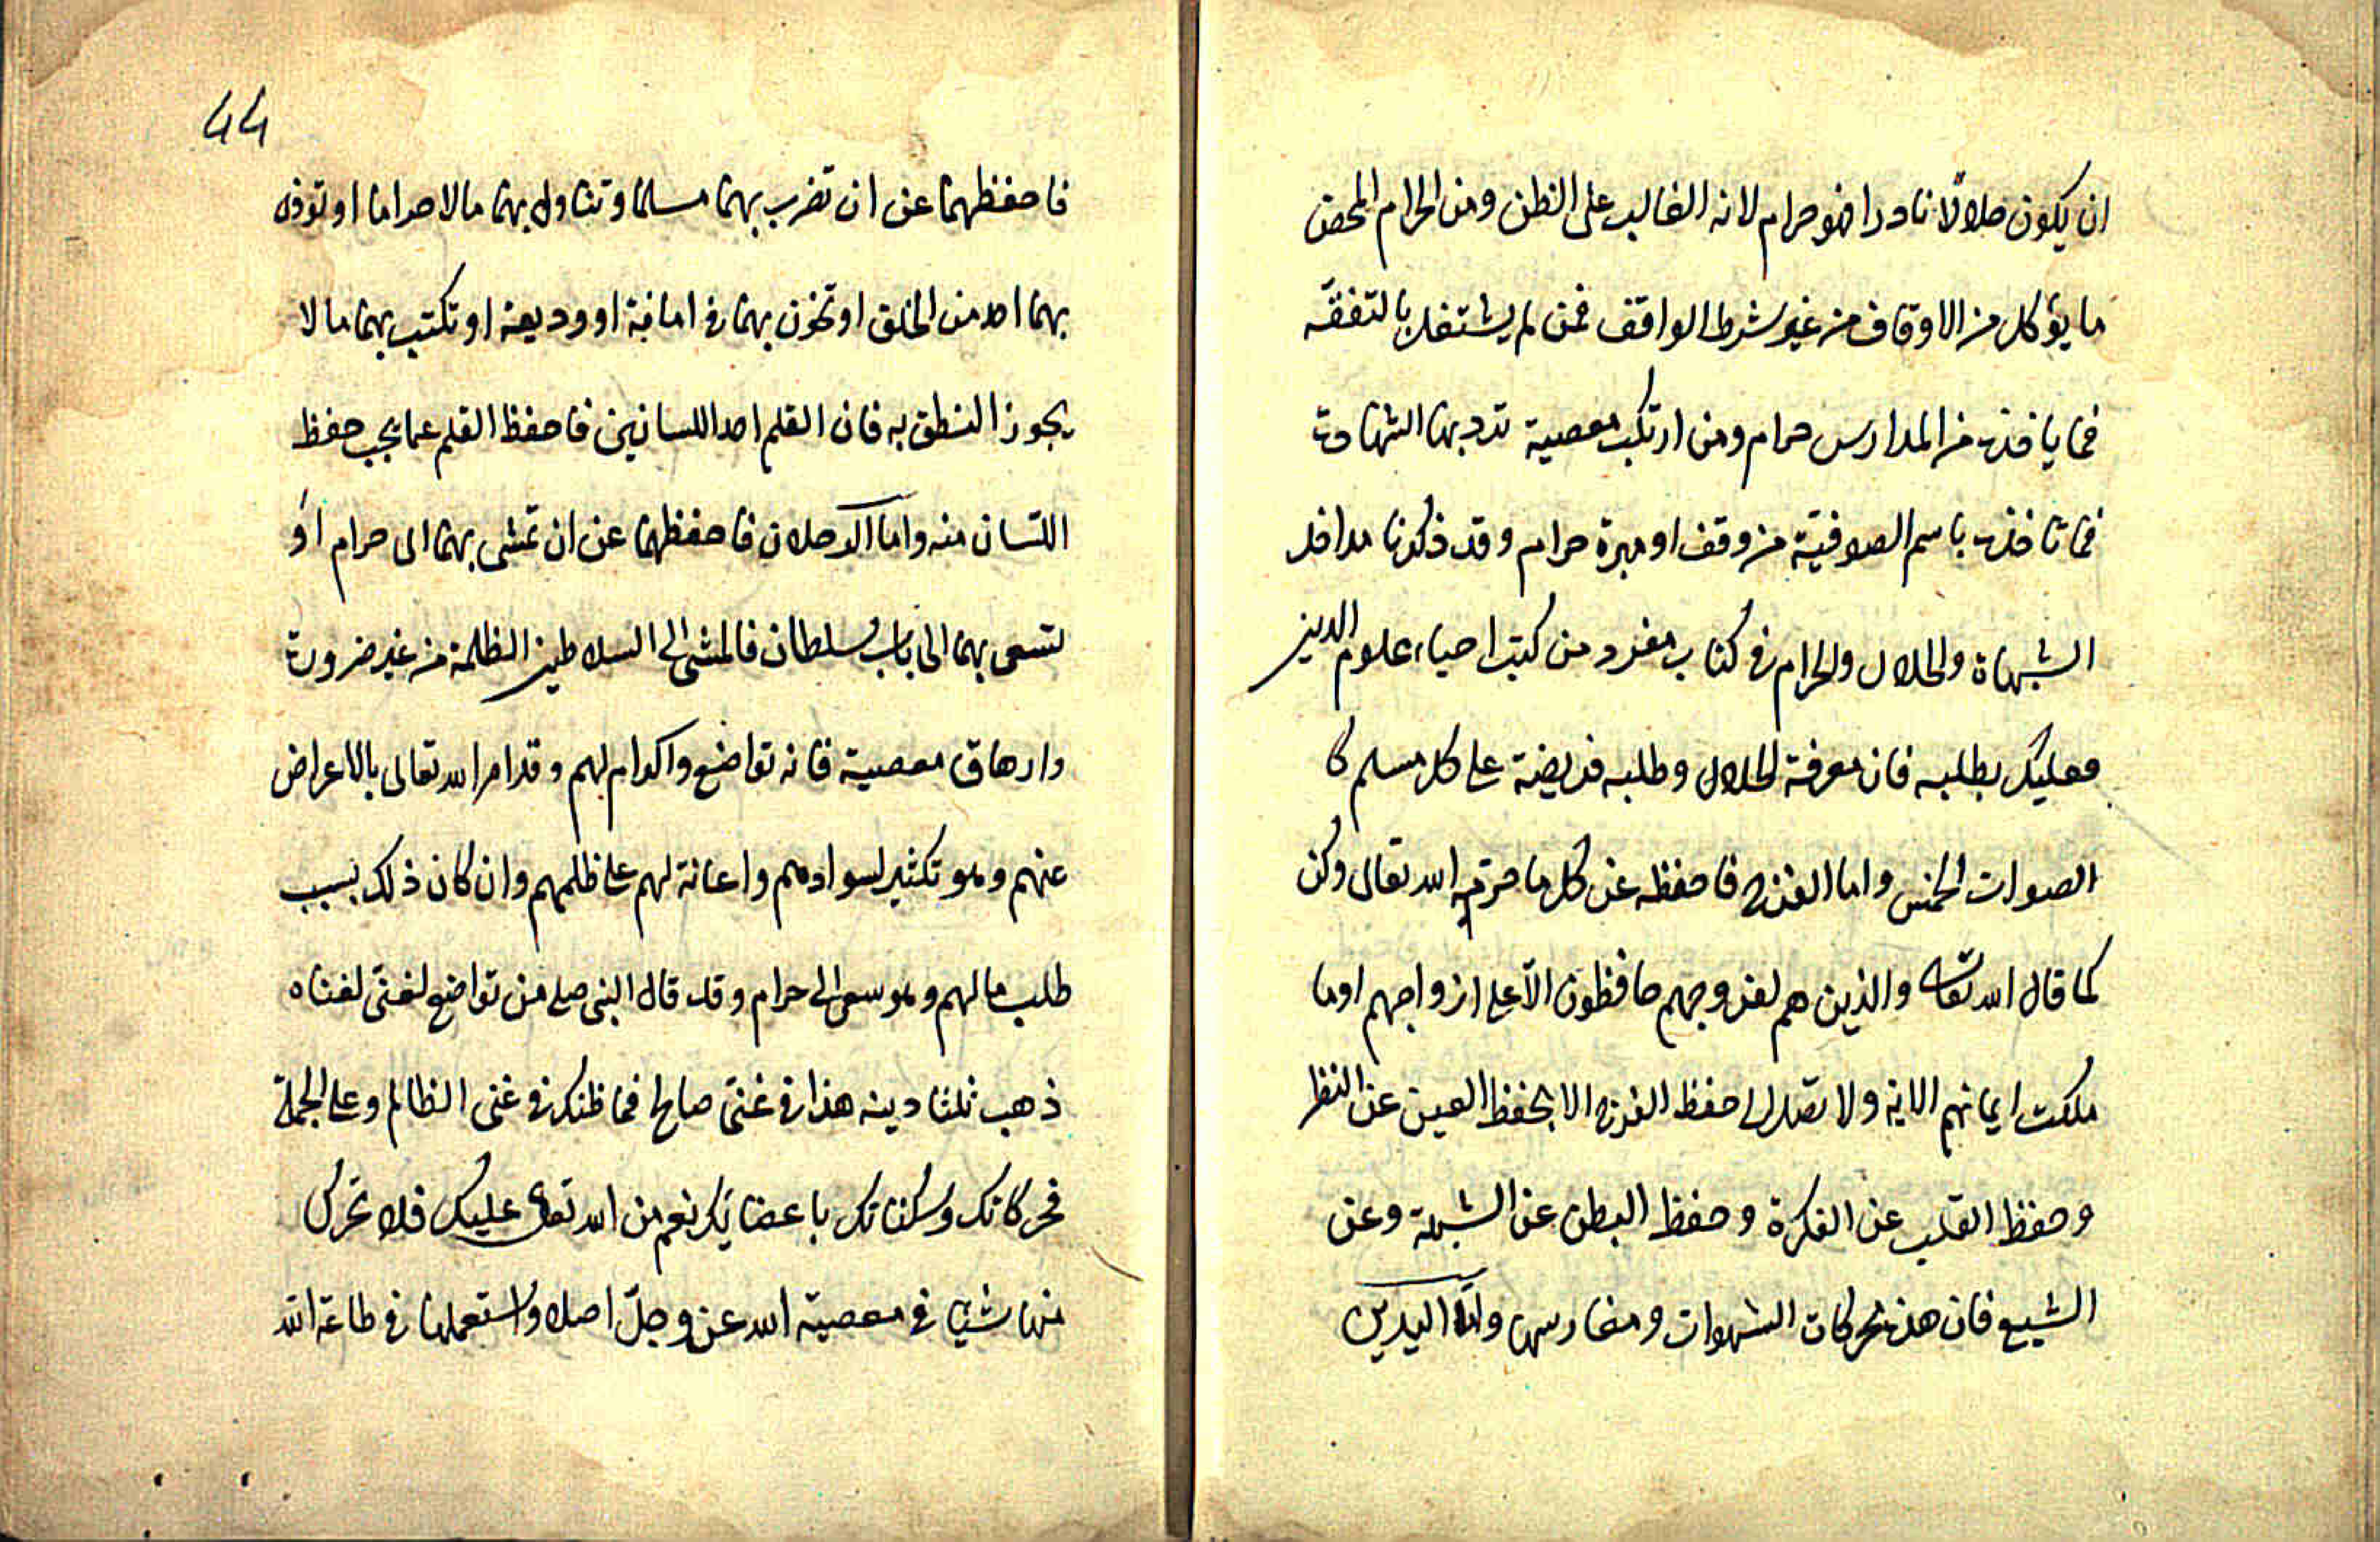 ان يكون حلالا نادرا فهو حرام لانه الغالب على الظن ومن الحرام المحض
ما يؤكل من الاوقاف من غير شرط الواقف فمن لم يشتغل بالتفقه
فما ياخذه من المدارس حرام ومن ارتكب معصية تردبها الشهادة
فما تاخذه باسم الصوفية من وقف او مبرة حرام وقد ذكرنا مداخل
الشبهاة والحلال والحرام فى كتاب مفرد من كتب احياء علوم الدين
فعليك بطلبه فان معرفة الحلال وطلبه فريضة على كل مسلم كا
الصوات الخمس واما الفرج فاحفظه عن كل ما حرّمه الله تعالى وكن
كما قال الله تعالى والذين هم لفروجهم حافظون الّا على ازواجهم او ما
ملكت ايمانهم الاية ولا تصل الى حفظ الفرج الا بحفظ العين عن النظر
وحفظ القلب عن الفكرة وحفظ البطن عن الشبهة وعن
الشبع فان هذه محركات الشهوات ومغارسها واما اليدين
44
فاحفظهما عن ان تضرب بهما مسلما وتناول بهما مالا حراما او توذى
بهما احد من الخلق او تخون بهما فى امانة او وديعة او تكتب بهما ما لا
يجوز النطق به فان القلم احد اللسانين فاحفظ القلم عما يجب حفظ
اللسان منه واما الرجلان فاحفظهما عن ان تمشى بهما الى حرام او
تسعى بهما الى باب سلطان فالمشى الى السلاطين الظلمة من غير ضرورة
وارهاق معصية فانه تواضع واكرام لهم وقد امر الله تعالى بالاعراض
عنهم وهو تكثير لسوادهم واعانة لهم على ظلمهم وان كان ذلك بسبب
طلب مالهم وهو سعى الى حرام وقد قال النبى صلعم من تواضع لغنى لغناه
ذهب ثلثا دينه هذا فى غنىّ صالح فما ظنك فى غنى الظالم وعلى الجملة
فحركاتك وسكناتك باعضائك نعم من الله تعالى عليك فلا تحرك
منها شيئا فى معصية الله عز وجلّ اصلا واستعملها فى طاعة الله